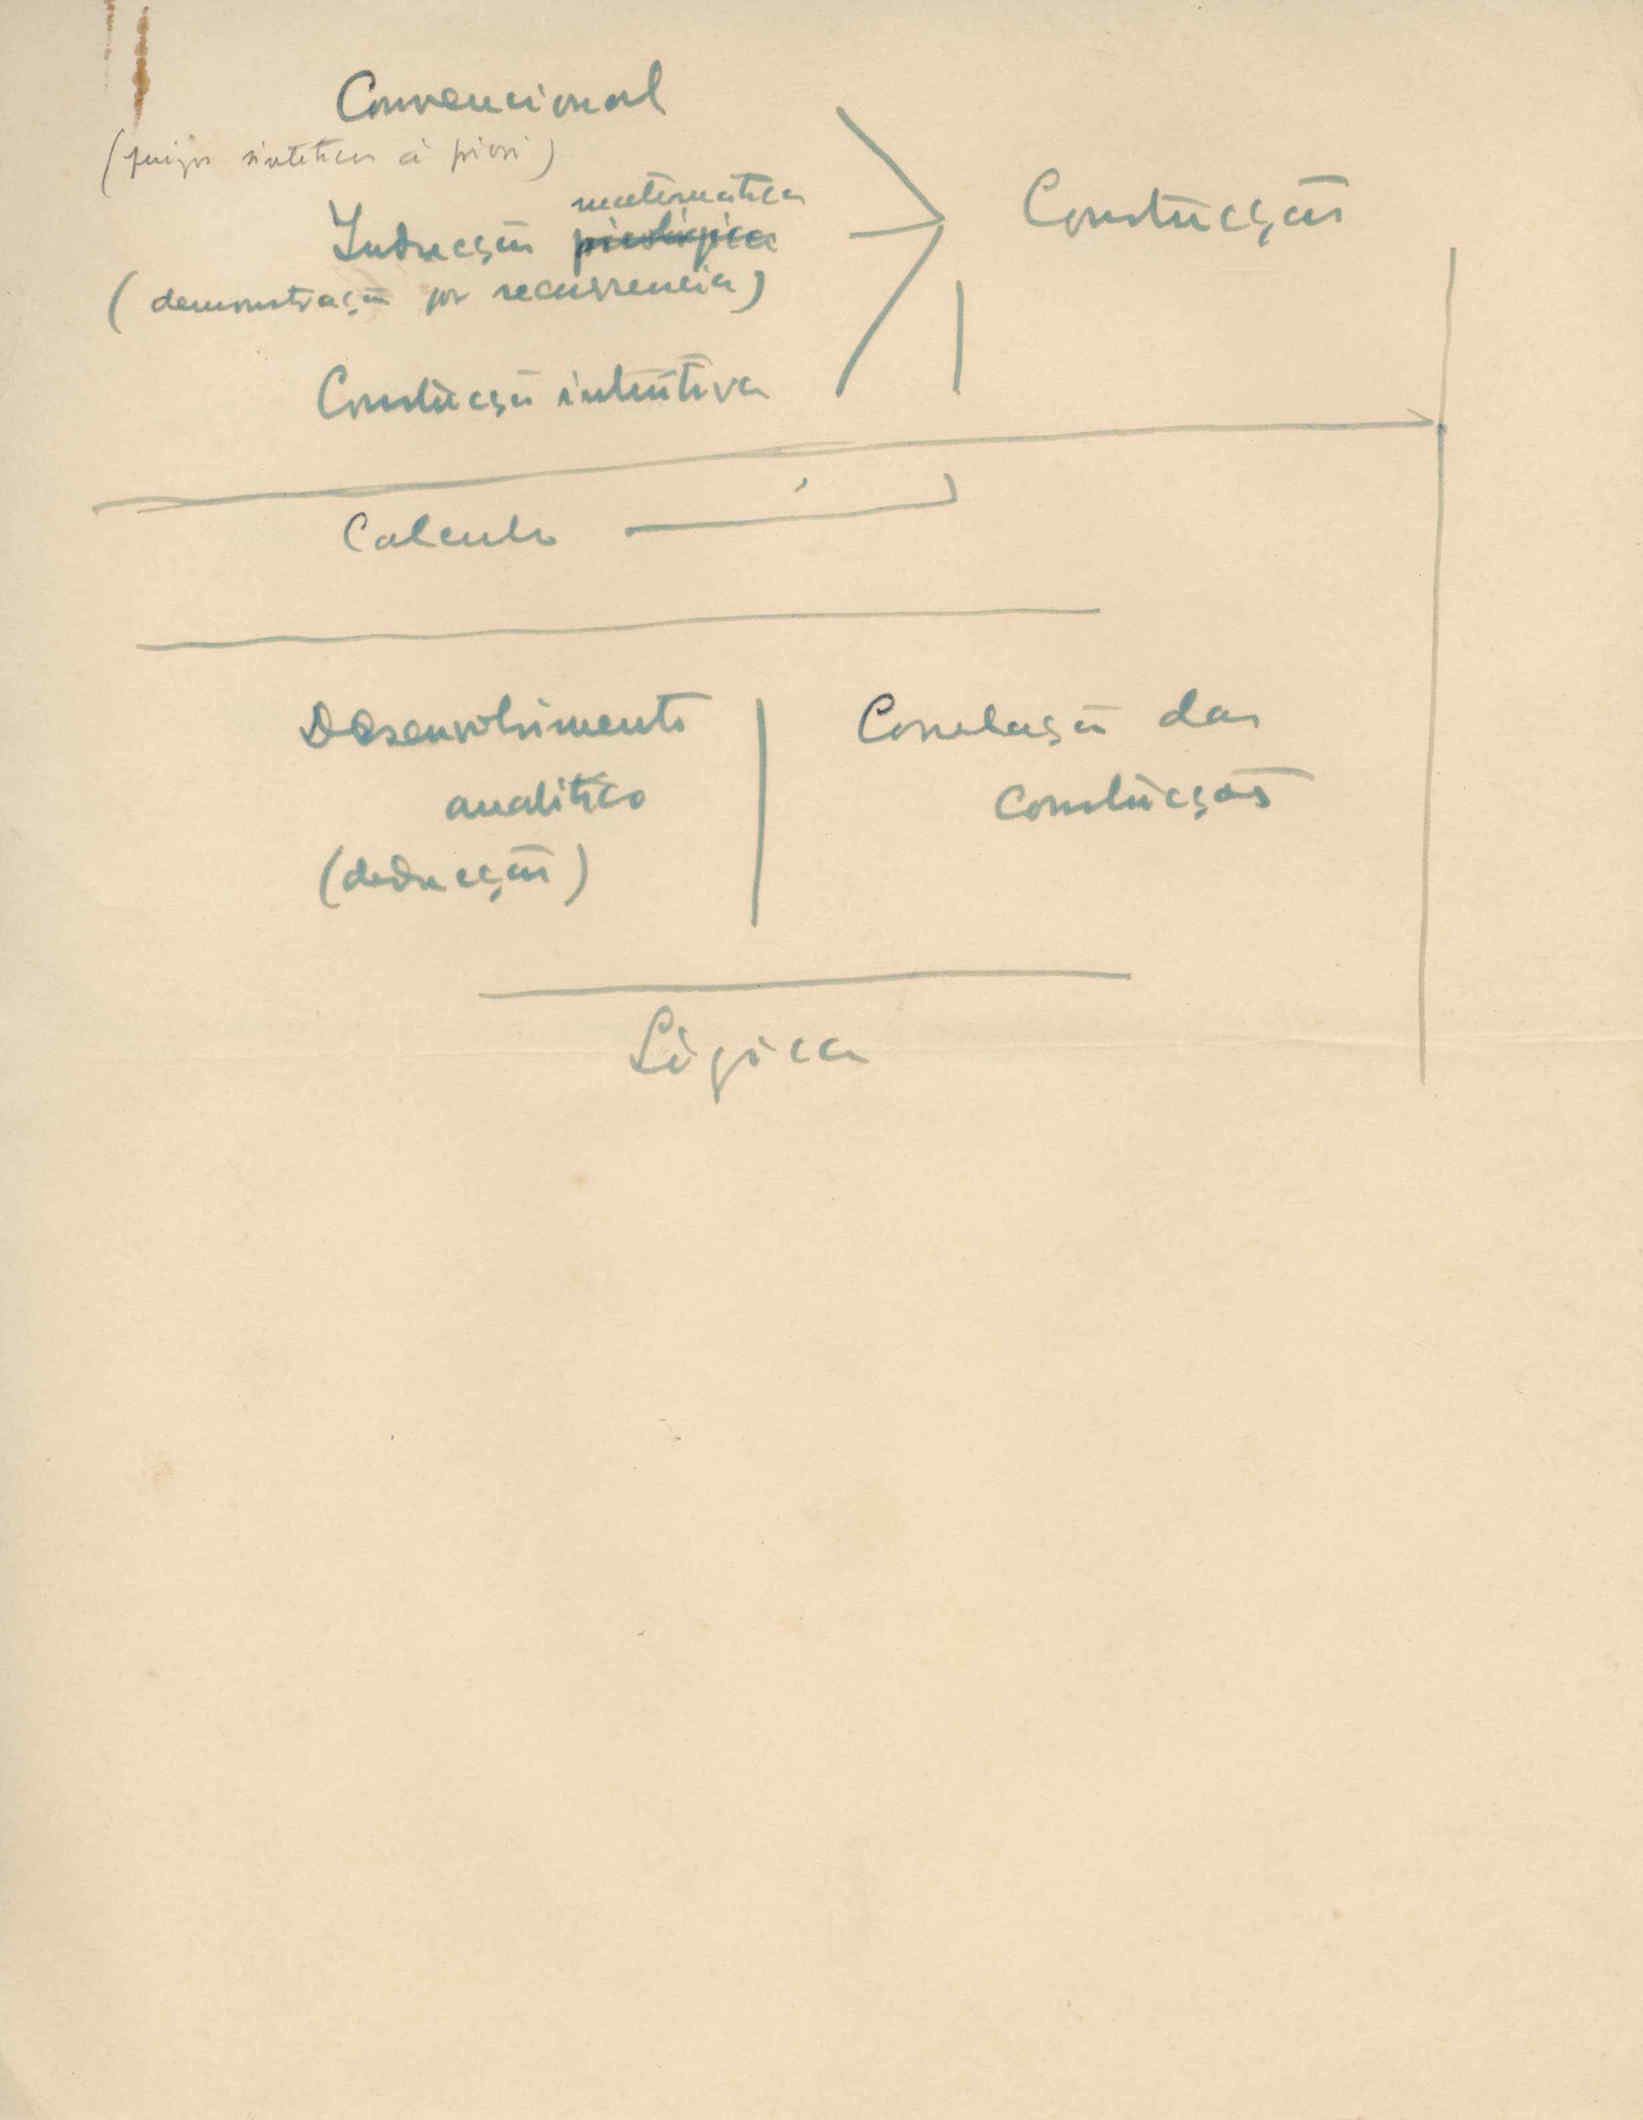 Convencional
(juizos sinteticos à priori)
matematica
Inducção
(demonstração por recurrencia)
Construcção
Construcção intuitiva
Calculo
Desenvolvimento
analitico
(deducção)
Correlação das
construcções
Lógica